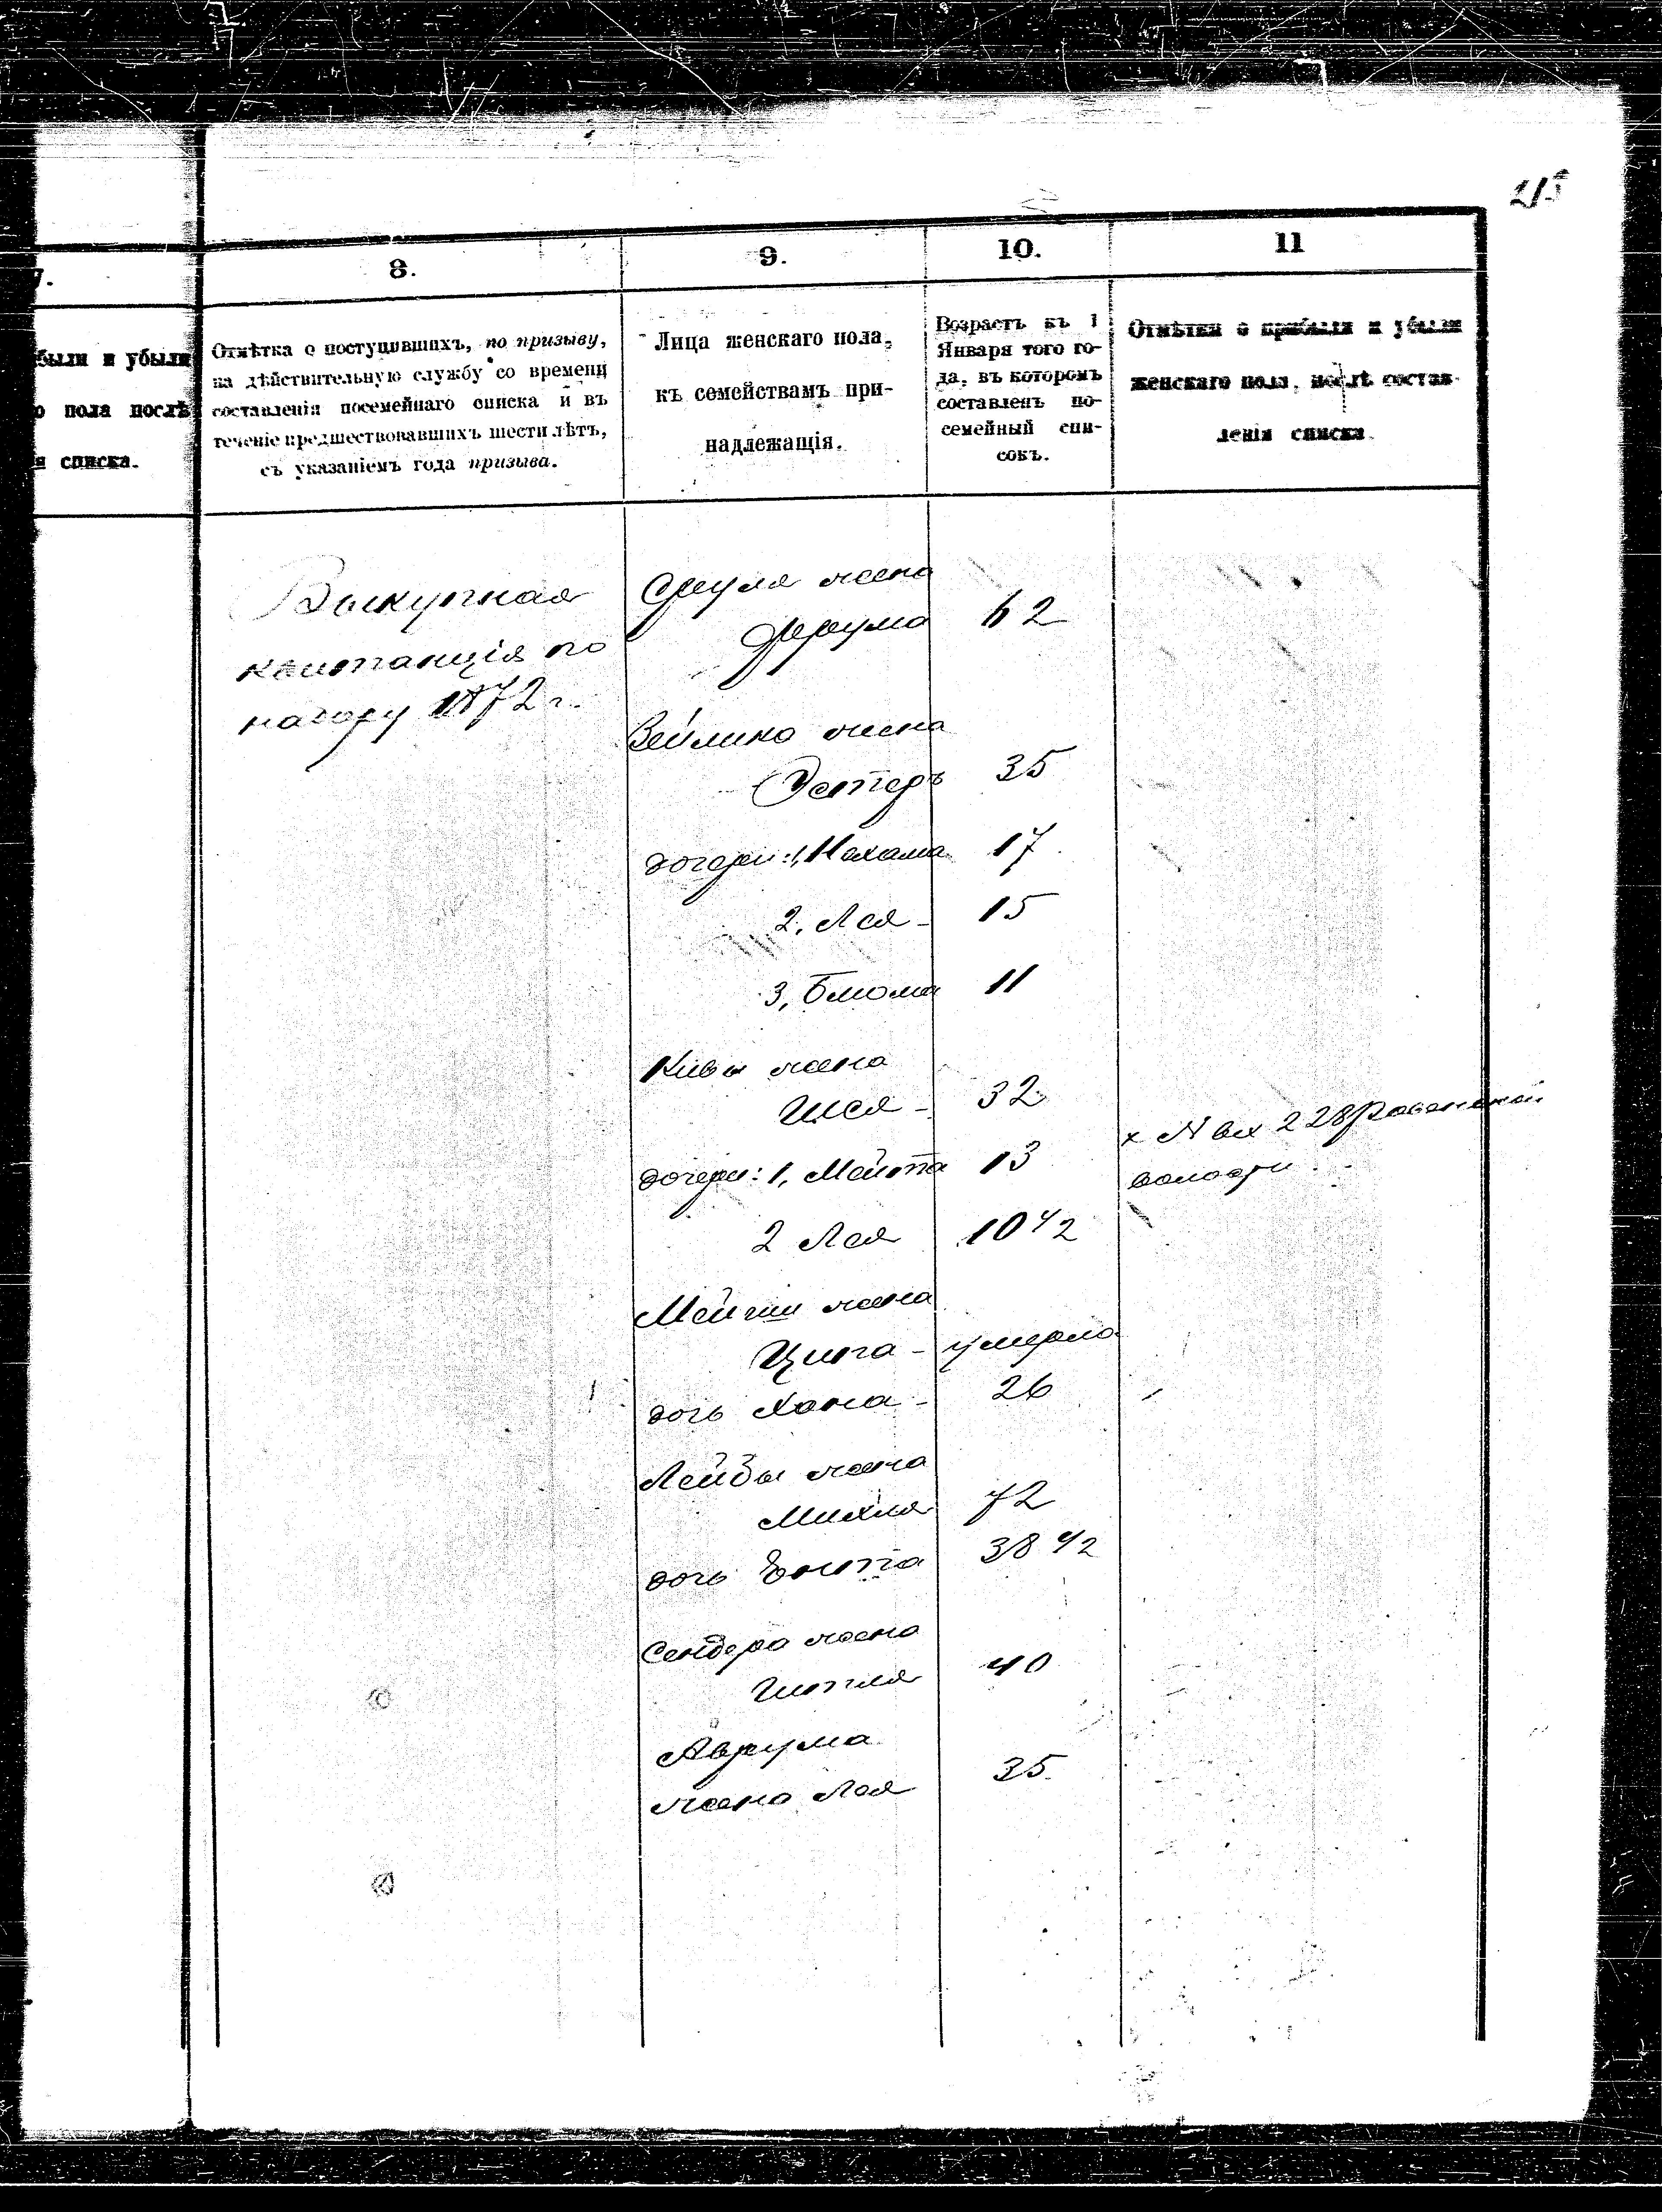 215
7.
8.
9.
10.
11
были и убыли
о пола послѣ
я списка.
Отмѣтка о поступившихъ, по призыву,
на дѣйствительную службу со времени
составленія посемейнаго списка и въ
теченіе предшествовавшихъ шести лѣтъ,
съ указаніемъ года призыва.
Лица женскаго пола,
къ семействамъ при-
надлежащія.
Возрастъ къ 1
Января того го-
да, въ которомъ
составленъ по-
семейный спи-
сокъ.
Отмѣтки о прибыли и убыли
женскаго пола, послѣ состав-
ленія списка.
Выкупная
квитанція по
набору 1872 г.
Сруля жена
Фрума 62
Вейлика жена
Эстеръ 35
дочери: 1, Нехама 17
2, Лея - 15
3, Блюма 11
Кивы жена
Шея - 32
дочери: 1, Мейта 13
2 Лея 10 1/2
х № вх 228
волости
жена
Ципа - умерла
дочь Хана - 26
Лейбы жена
Михля 72
дочь Ента 38 1/2
Сендера жена
Гитля 40
Аврума
жена Лея 35